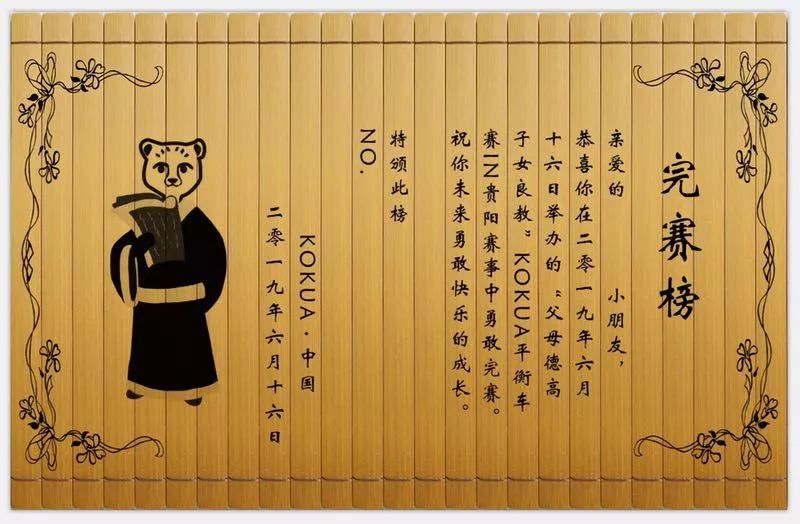 完赛榜
亲爱的 小朋友，
恭喜你在二零一九年六月
十六日举办的“父母德高
子女良教”KOKUA平衡车
赛IN贵阳赛事中勇敢完赛。
祝你未来勇敢快乐的成长。
特颁此榜
NO.
KOKUA·中国
二零一九年六月十六日